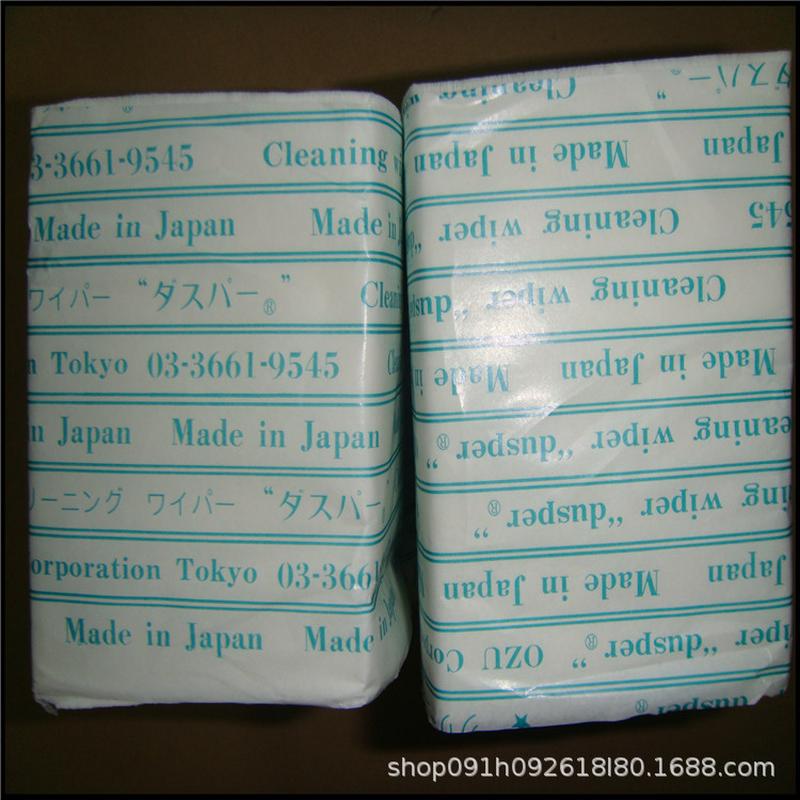 03-3661-9545 Cleaning
Made in Japan Made in
ワイパー “ダスパー®” Clean
Tokyo 03-3661-9545
Japan Made in Japan
ーニング ワイパー “ダスパー®
orporation Tokyo 03-366
Made in Japan Made in
Cleaning ” ダスパー®
Japan Made in Japan
545 Cleaning wiper “
Cleaning wiper “dusp
Made in Japan Made in
eaning wiper “dusper®”
ing wiper “dusper®”
Japan Made in Japan
wiper “dusper®” OZU Corp
dusper®
shop091h092618l80.1688.com